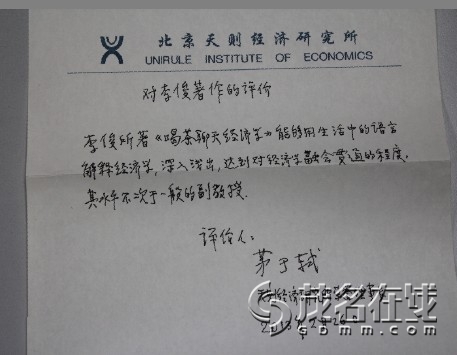 北京天则经济研究所
UNIRULE INSTITUTE OF ECONOMICS
对李俊著作的评价
李俊所著《喝茶聊天经济学》能够用生活中的语言
解释经济学，深入浅出，达到对经济学融会贯通的程度。
其水平不次于一般的副教授。
评价人：
茅于轼
茂名在线
gbmm.com